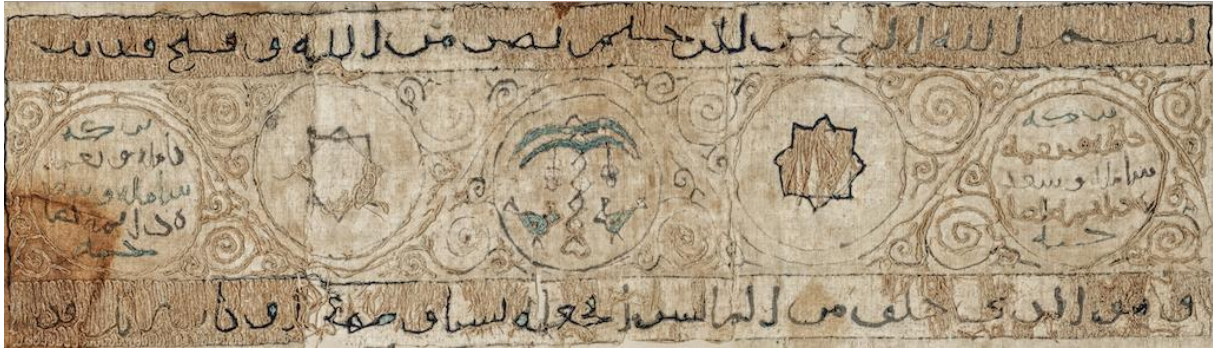 بسم الله الرحمن الرحيم نصر من الله وفتح قريب
بركة
كاملة ونعمة
شاملة وسعد
لصا
حبه
بركة
كاملة ونعمة
شاملة وسعا
دة لصا
حبه
وهو الذي خلق من الماء بشرا فجعله نسبا وصهرا وكان ربك قد